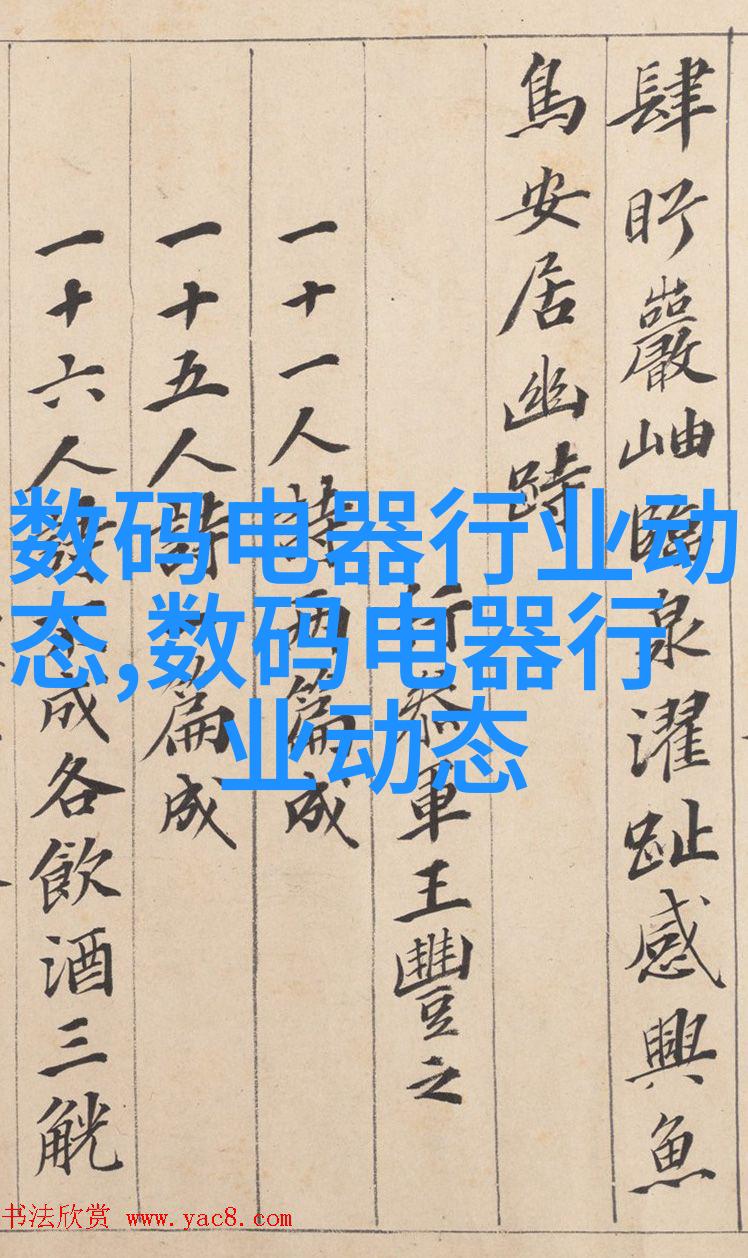 肆盱巖岫臨泉濯趾感興魚
鳥安居幽跱
行參軍王豐之
一十一人詩兩篇成
一十五人詩一篇成
一十六人詩不成各飲酒三觥
数码电器行业动
态,数码电器行
业动态
书法欣赏 www.yac8.com